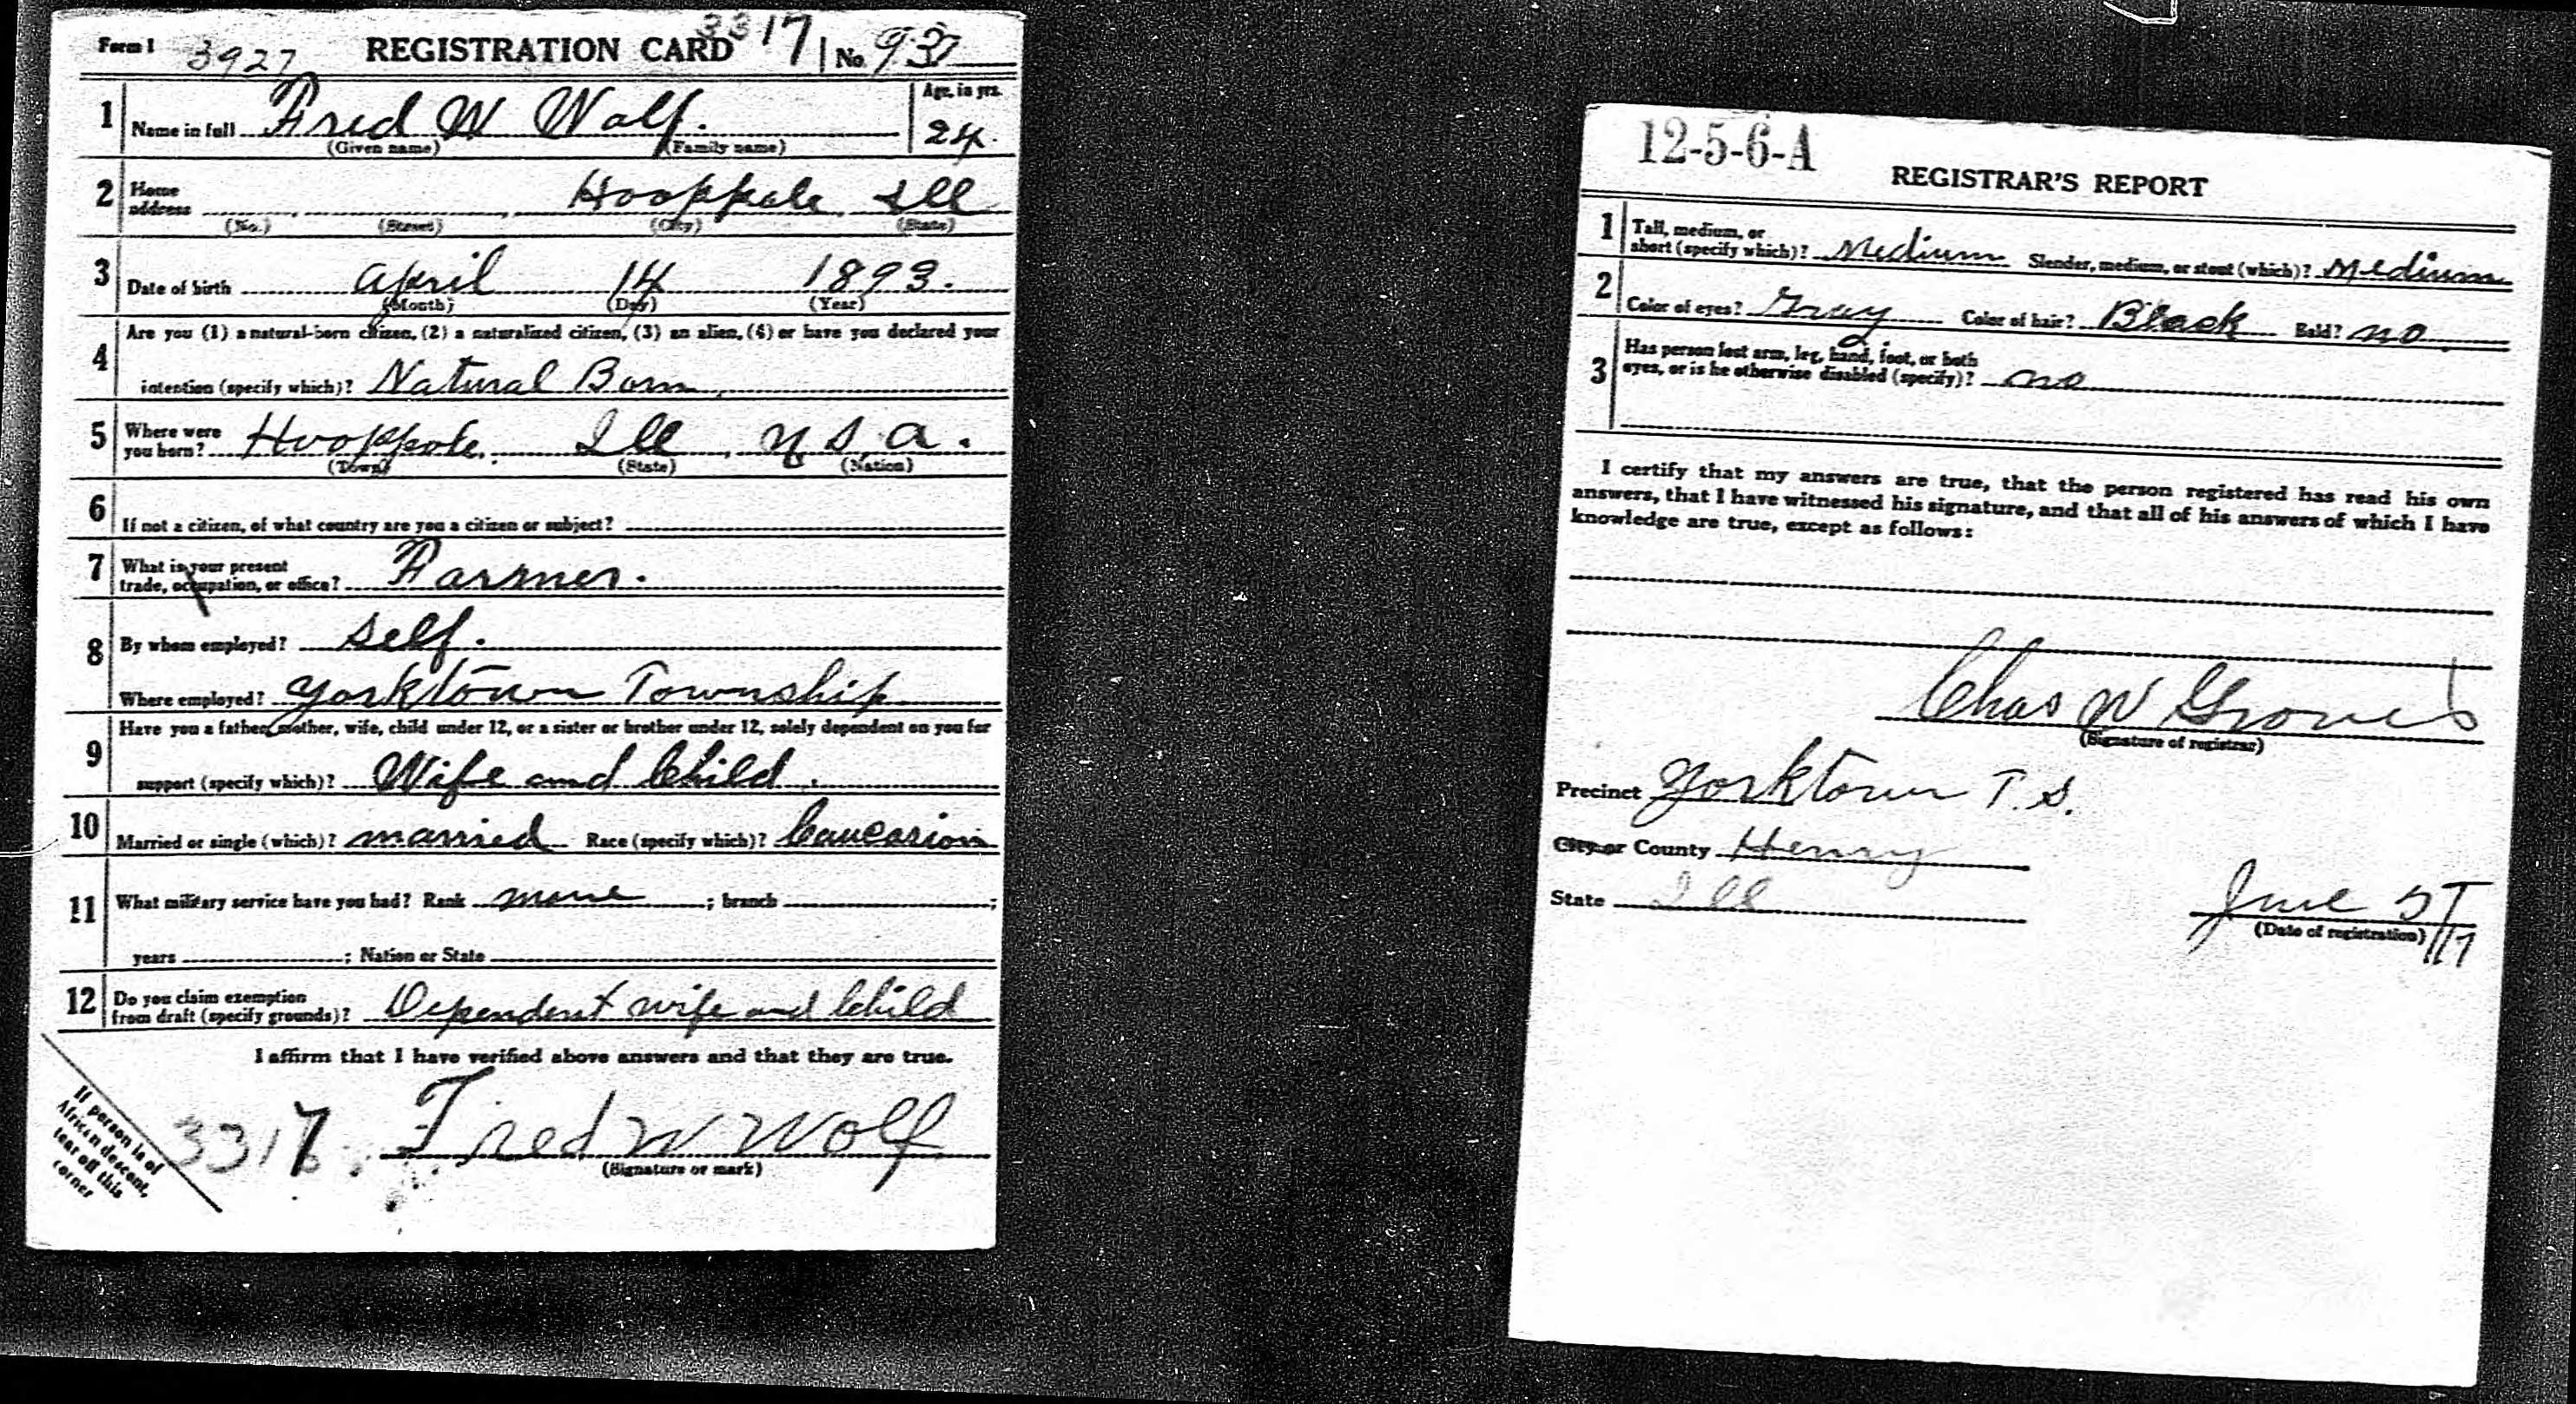 Form 1 3927 REGISTRATION CARD 3317 No. 937
1 Name in full Fred W Wolf. Age, in yrs. 24.
(Given name) (Family name)
2 Home address Hooppole Ill
(No.) (Street) (City) (State)
3 Date of birth April 14 1893.
(Month) (Day) (Year)
4 Are you (1) a natural-born citizen, (2) a naturalized citizen, (3) an alien, (4) or have you declared your
intention (specify which)? Natural Born
5 Where were you born? Hooppole, Ill, U.S.A.
(Town) (State) (Nation)
6 If not a citizen, of what country are you a citizen or subject?
7 What is your present
trade, occupation, or office? Farmer.
8 By whom employed? Self.
Where employed? Yorktown Township
9 Have you a father, mother, wife, child under 12, or a sister or brother under 12, solely dependent on you for
support (specify which)? Wife and Child.
10 Married or single (which)? married Race (specify which)? Caucasion
11 What military service have you had? Rank none ; branch ;
years ; Nation or State
12 Do you claim exemption
from draft (specify grounds)? Dependent wife and Child
I affirm that I have verified above answers and that they are true.
3317 Fred W Wolf
(Signature or mark)
If person is of
African descent,
tear off this
corner
12-5-6-A
REGISTRAR'S REPORT
1 Tall, medium, or
short (specify which)? Medium Slender, medium, or stout (which)? Medium
2 Color of eyes? Gray Color of hair? Black Bald? no
3 Has person lost arm, leg, hand, foot, or both
eyes, or is he otherwise disabled (specify)? no
I certify that my answers are true, that the person registered has read his own
answers, that I have witnessed his signature, and that all of his answers of which I have
knowledge are true, except as follows:
Chas W Groves
(Signature of registrar)
Precinct Yorktown T.S.
City or County Henry
State Ill
June 5/17
(Date of registration)